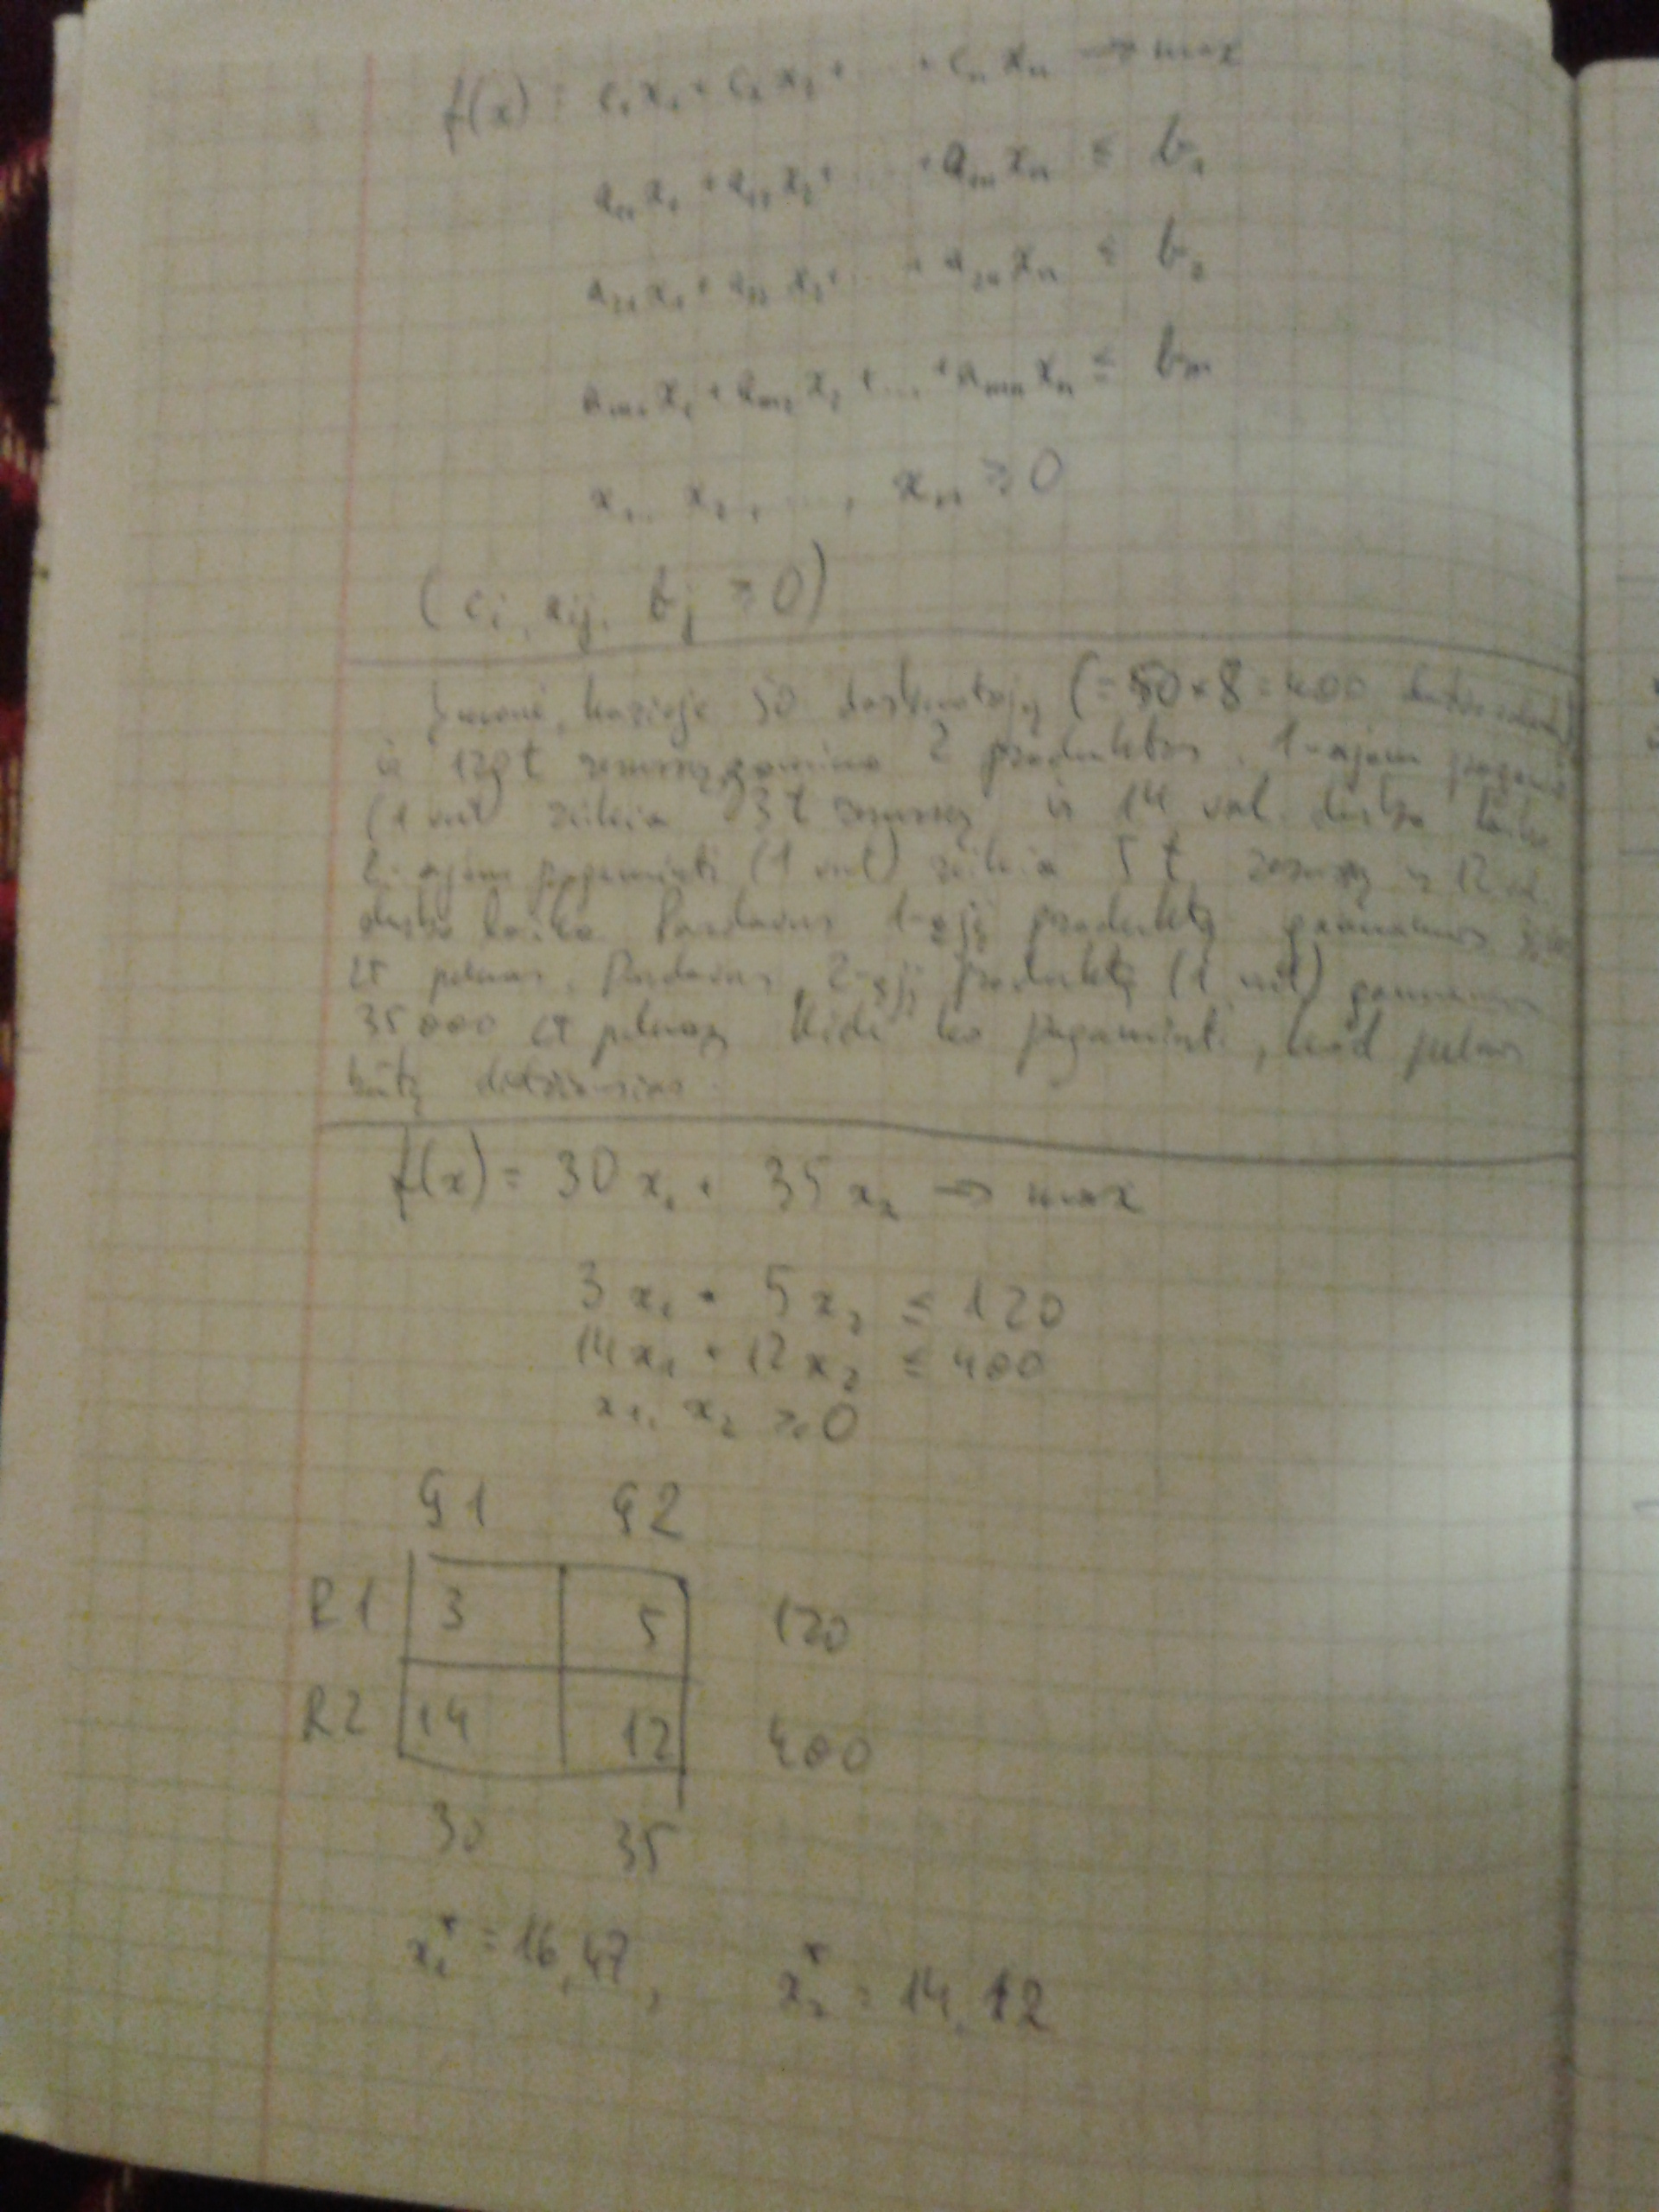 f(x) = c₁x₁ + c₂x₂ + ... + cₙxₙ → max
a₁₁x₁ + a₁₂x₂ + ... + a₁ₙxₙ ≤ b₁
a₂₁x₁ + a₂₂x₂ + ... + a₂ₙxₙ ≤ b₂
aₘ₁x₁ + aₘ₂x₂ + ... + aₘₙxₙ ≤ bₘ
x₁, x₂, ..., xₙ ≥ 0
(cᵢ, aᵢⱼ, bⱼ ≥ 0)
Įmonė, kurioje 50 darbuotojų (= 50 × 8 = 400
ir 120 t resursų, gamina 2 produktus. 1-ajam
(1 vnt) reikia 3 t resursų ir 14 val. darbo laiko
2-ajam pagaminti (1 vnt) reikia 5 t resursų ir 12 val.
darbo laiko. Pardavus 1-ąjį produktą gaunamas
Lt pelnas. Pardavus 2-ąjį produktą (1 vnt) gaunamas
35 000 Lt pelnas. Kiek ko pagaminti, kad pelnas
būtų didžiausias.
f(x) = 30x₁ + 35x₂ → max
3x₁ + 5x₂ ≤ 120
14x₁ + 12x₂ ≤ 400
x₁, x₂ ≥ 0
G1 G2
R1 3 5 120
R2 14 12 400
30 35
x₁* = 16,47, x₂* = 14,12